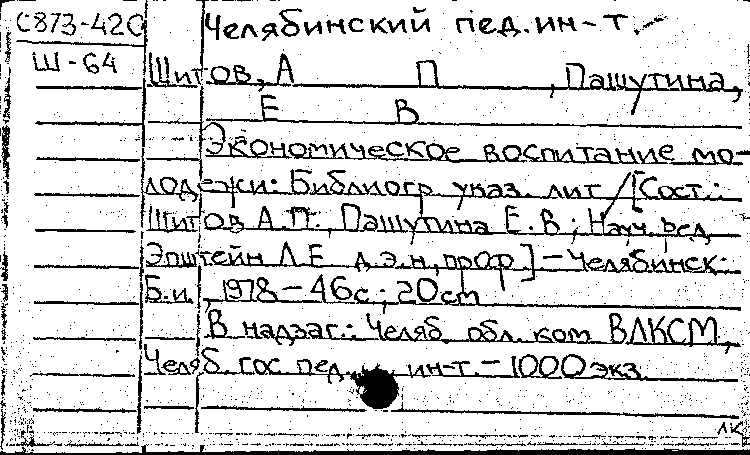 С873-420 Челябинский пед. ин-т.-
Ш-64 Шитов, А П , Пашутина,
Е В
Экономическое воспитание мо-
лодежи: Библиогр. указ. лит /[Сост.:
Шитов А.П., Пашутина Е.В ; Науч. ред
Эпштейн Л.Е д.э.н, проф.] - Челябинск:
Б.и. , 1978 - 46с ; 20см
В надзаг.: Челяб. обл. ком ВЛКСМ,
Челяб. гос пед. ин-т. - 1000 экз
лк